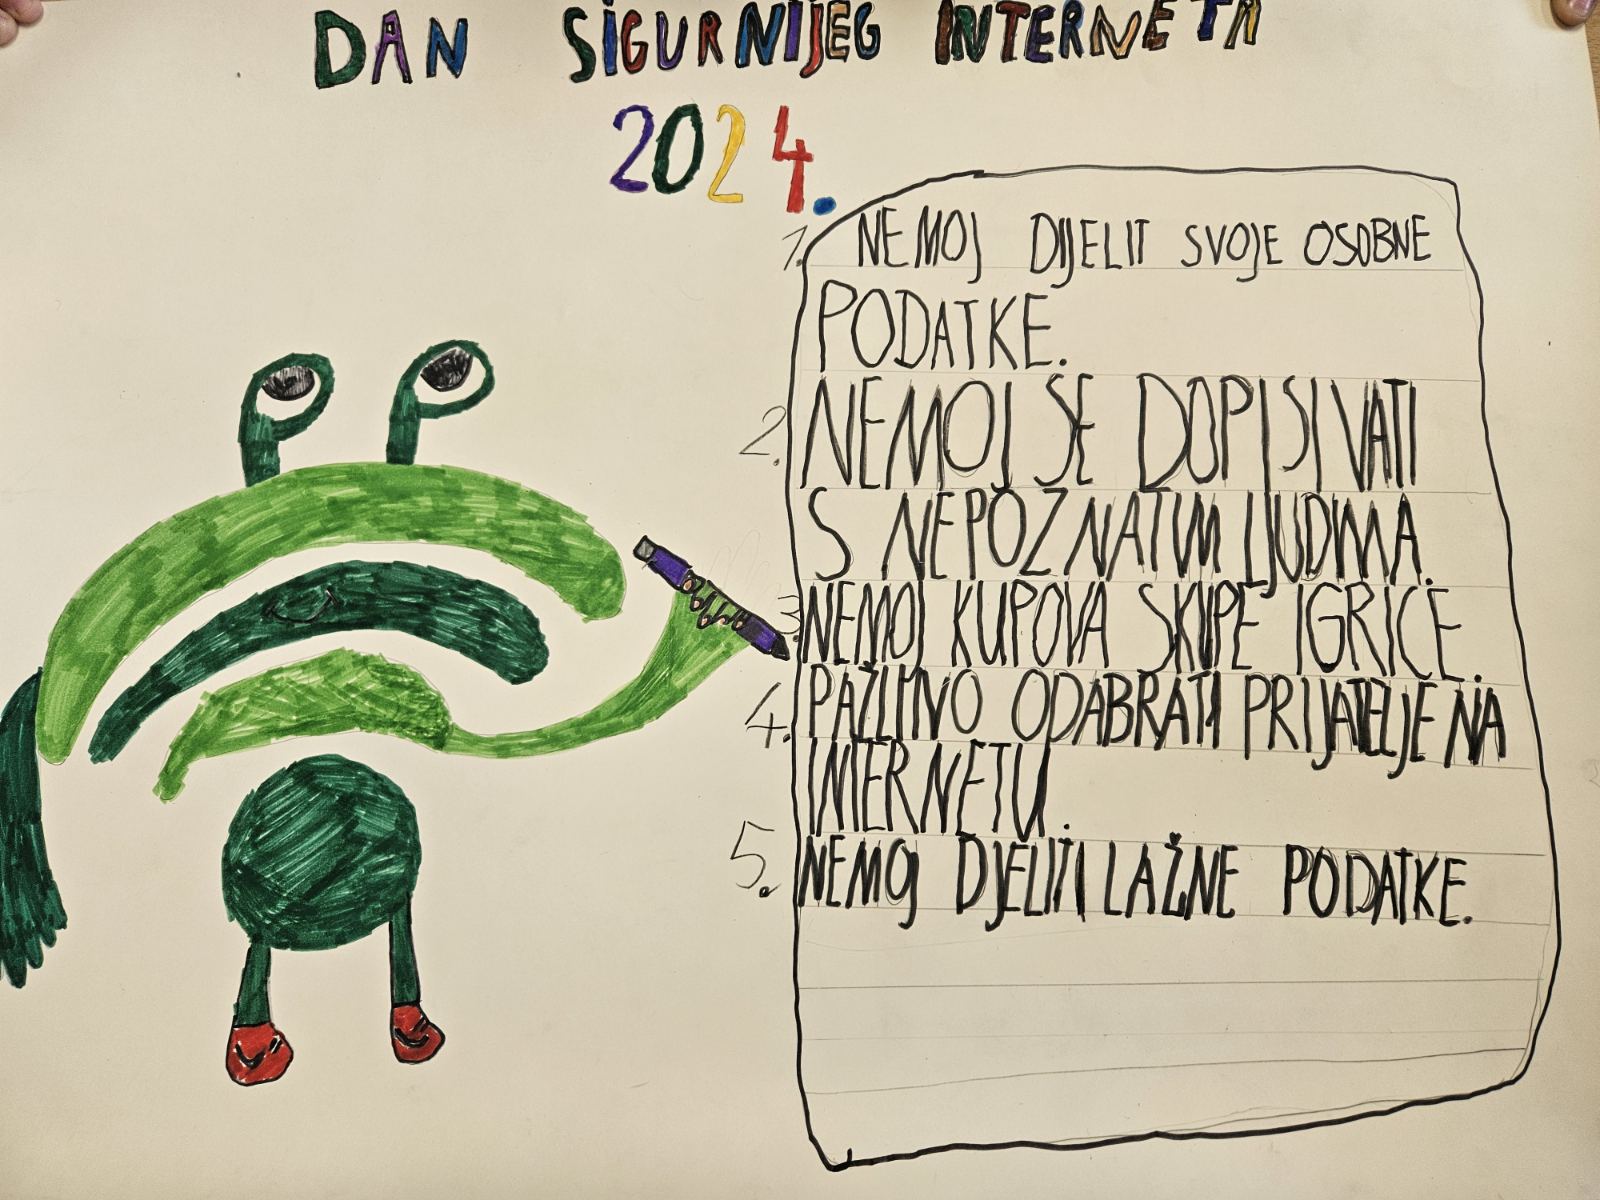 DAN SIGURNIJEG INTERNETA
2024.
1. NEMOJ DIJELIT SVOJE OSOBNE
PODATKE.
2. NEMOJ SE DOPISIVATI
S NEPOZNATIM LJUDIMA.
3. NEMOJ KUPOVA SKUPE IGRICE.
4. PAŽLJIVO ODABRATI PRIJATELJE NA
INTERNETU.
5. NEMOJ DJELITI LAŽNE PODATKE.